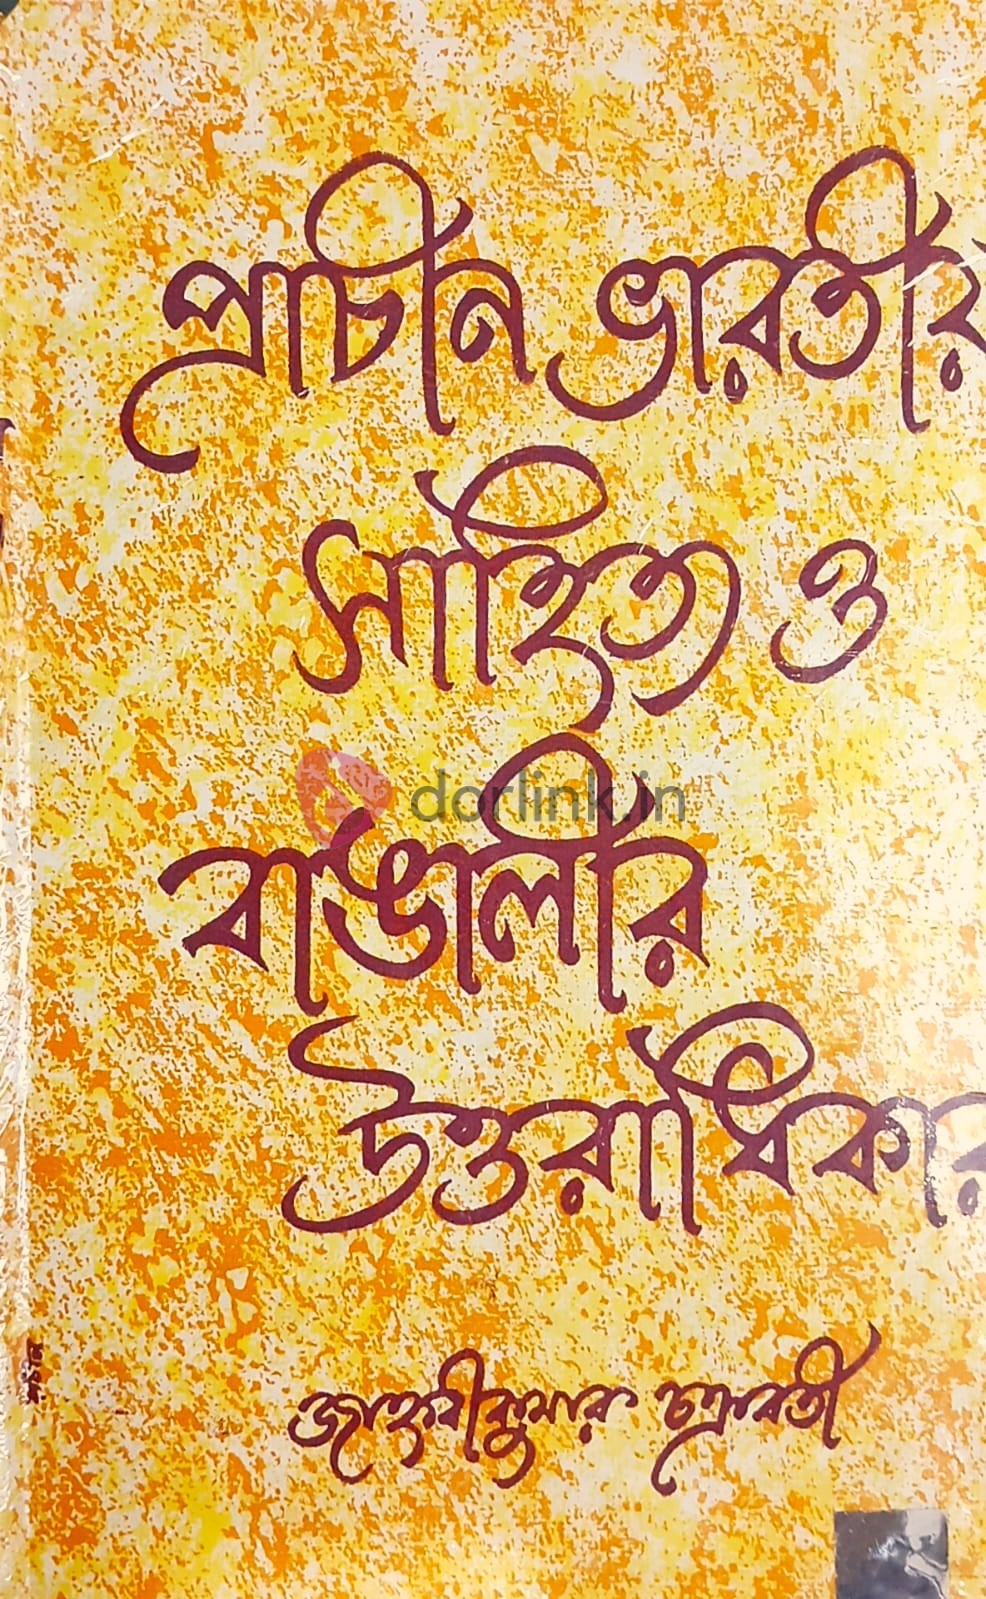 প্রাচীন ভারতীয়
সাহিত্য ও
dorlink.in
বাঙালীর
উত্তরাধিকার
জাহ্নবীকুমার চক্রবর্তী